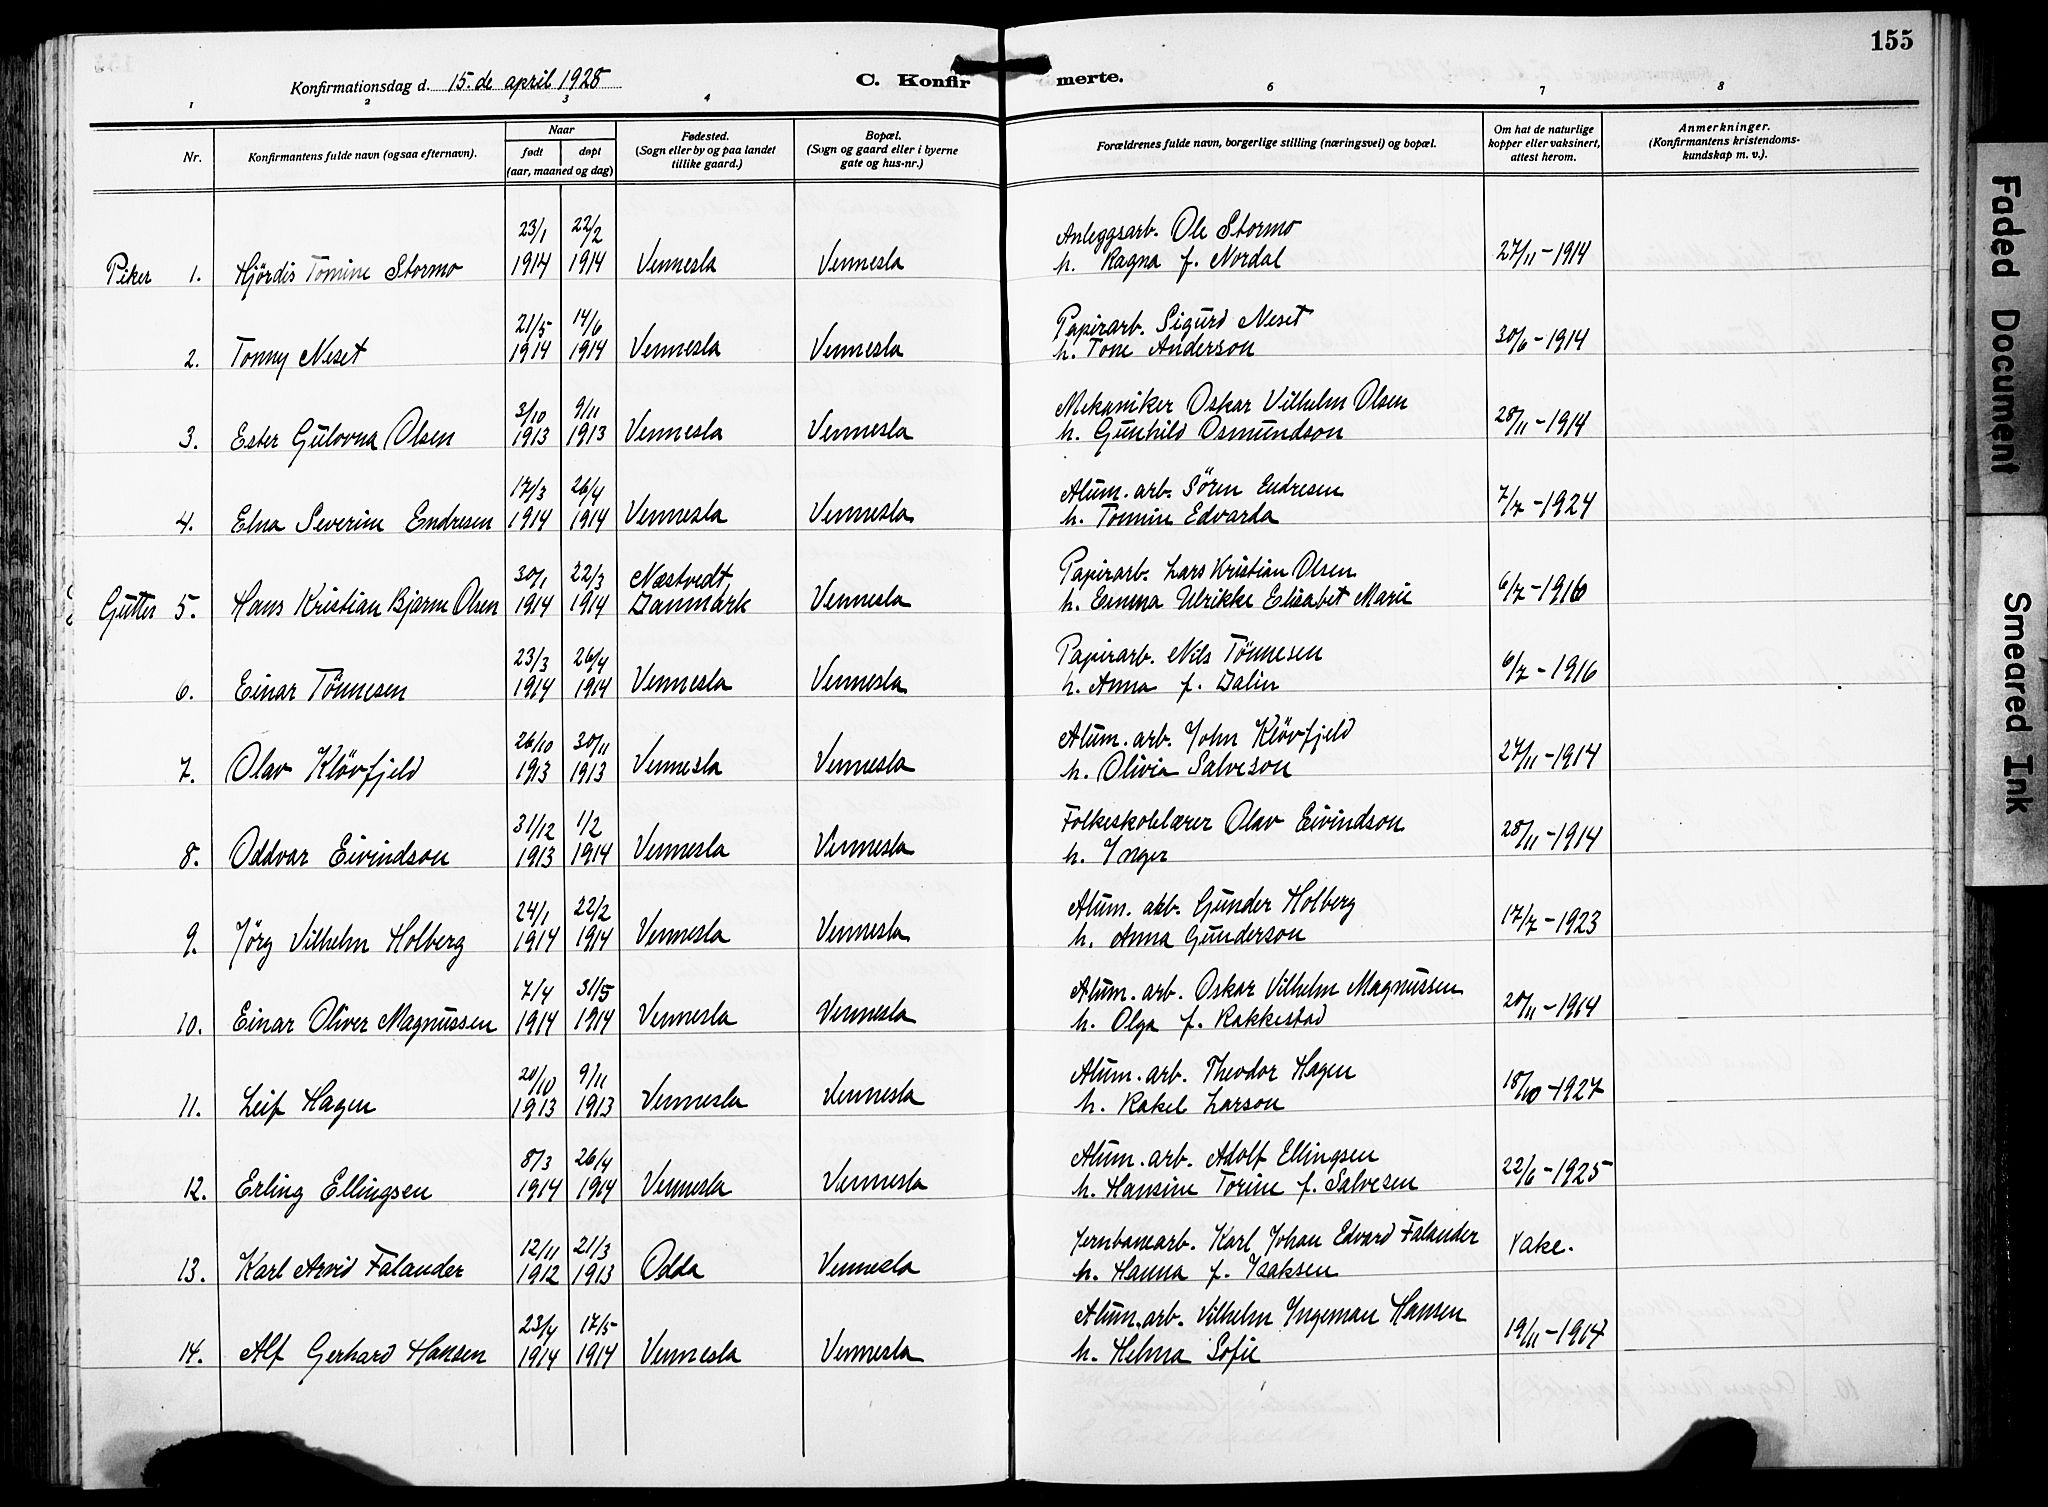 155
Konfirmationsdag d. 15. de april 1928
C. Konfirmerte.
1 2 3 4 6 7 8
Nr.
Konfirmantens fulde navn (ogsaa efternavn).
Naar
født døpt
(aar, maaned og dag)
Fødested.
(Sogn eller by og paa landet
tillike gaard.)
Bopæl.
(Sogn og gaard eller i byerne
gate og hus-nr.)
Forældrenes fulde navn, borgerlige stilling (næringsvei) og bopæl.
Om hat de naturlige
kopper eller vaksinert,
attest herom.
Anmerkninger.
(Konfirmantens kristendoms-
kundskap m. v.).
23/1 22/2 Anleggsarb. Ole Stormo
Piker 1. Hjördis Tomine Stormo 1914 1914 Vennesla Vennesla h. Ragna f. Nordal 27/11-1914
21/5 14/6 Papirarb. Sigurd Neset
2. Tonny Neset 1914 1914 Vennesla Vennesla h. Tone Anderson 30/6-1914
3/10 9/11 Mekaniker Oskar Vilhelm Olsen
3. Ester Gulovna Olsen 1913 1913 Vennesla Vennesla h. Gunhild Osmundson 28/11-1914
17/3 26/4 Alum. arb. Sören Endresen
4. Elna Severine Endresen 1914 1914 Vennesla Vennesla h. Tomine Edvarda 7/7-1924
30/1 22/3 Næstvedt, Papirarb. Lars Kristian Olsen
Gutter 5. Hans Kristian Bjarne Olsen 1914 1914 Danmark Vennesla h. Emma Ulrikke Elisabet Marie 6/7-1916
23/3 26/4 Papirarb. Nils Tönnesen
6. Einar Tönnesen 1914 1914 Vennesla Vennesla h. Anna f. Dalin 6/7-1916
26/10 30/11 Alum. arb. John Klövfjeld
7. Olav Klövfjeld 1913 1913 Vennesla Vennesla h. Olivia Salveson 27/11-1914
31/12 1/2 Folkeskolelærer Olav Eivindson
8. Oddvar Eivindson 1913 1914 Vennesla Vennesla h. Inger 28/11-1914
24/1 22/2 Alum. arb. Gunder Holberg
9. Jörg Vilhelm Holberg 1914 1914 Vennesla Vennesla h. Anna Gunderson 17/7-1923
7/4 31/5 Alum. arb. Oskar Vilhelm Magnussen
10. Einar Oliver Magnussen 1914 1914 Vennesla Vennesla h. Olga f. Rakkestad 28/11-1914
20/10 9/11 Alum. arb. Theodor Hagen
11. Leif Hagen 1913 1913 Vennesla Vennesla h. Rakel Larson 18/10-1927
8/3 26/4 Alum. arb. Adolf Ellingsen
12. Erling Ellingsen 1914 1914 Vennesla Vennesla h. Hansine Torine f. Salvesen 22/6-1925
12/11 21/3 Jernbanearb. Karl Johan Edvard Falander
13. Karl Arvid Falander 1912 1913 Odda Vennesla h. Hanna f. Isaksen Vake.
23/4 17/5 Alum. arb. Vilhelm Ingeman Hansen
14. Alf Gerhard Hansen 1914 1914 Vennesla Vennesla h. Helma Sofie 19/11-1917
Faded Document
Smeared Ink